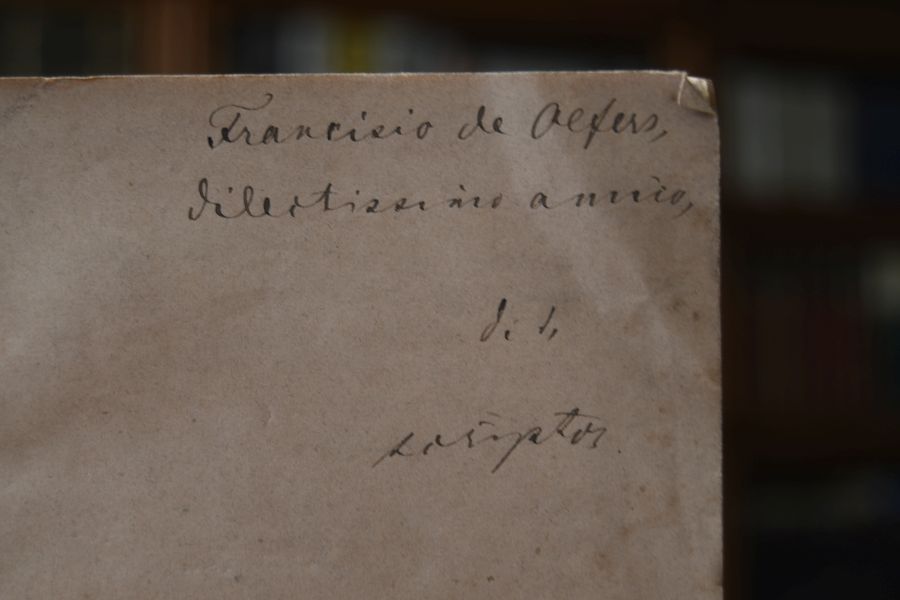 Francisio de Oefers,
dilectissimo amico,
d. d.
scriptor